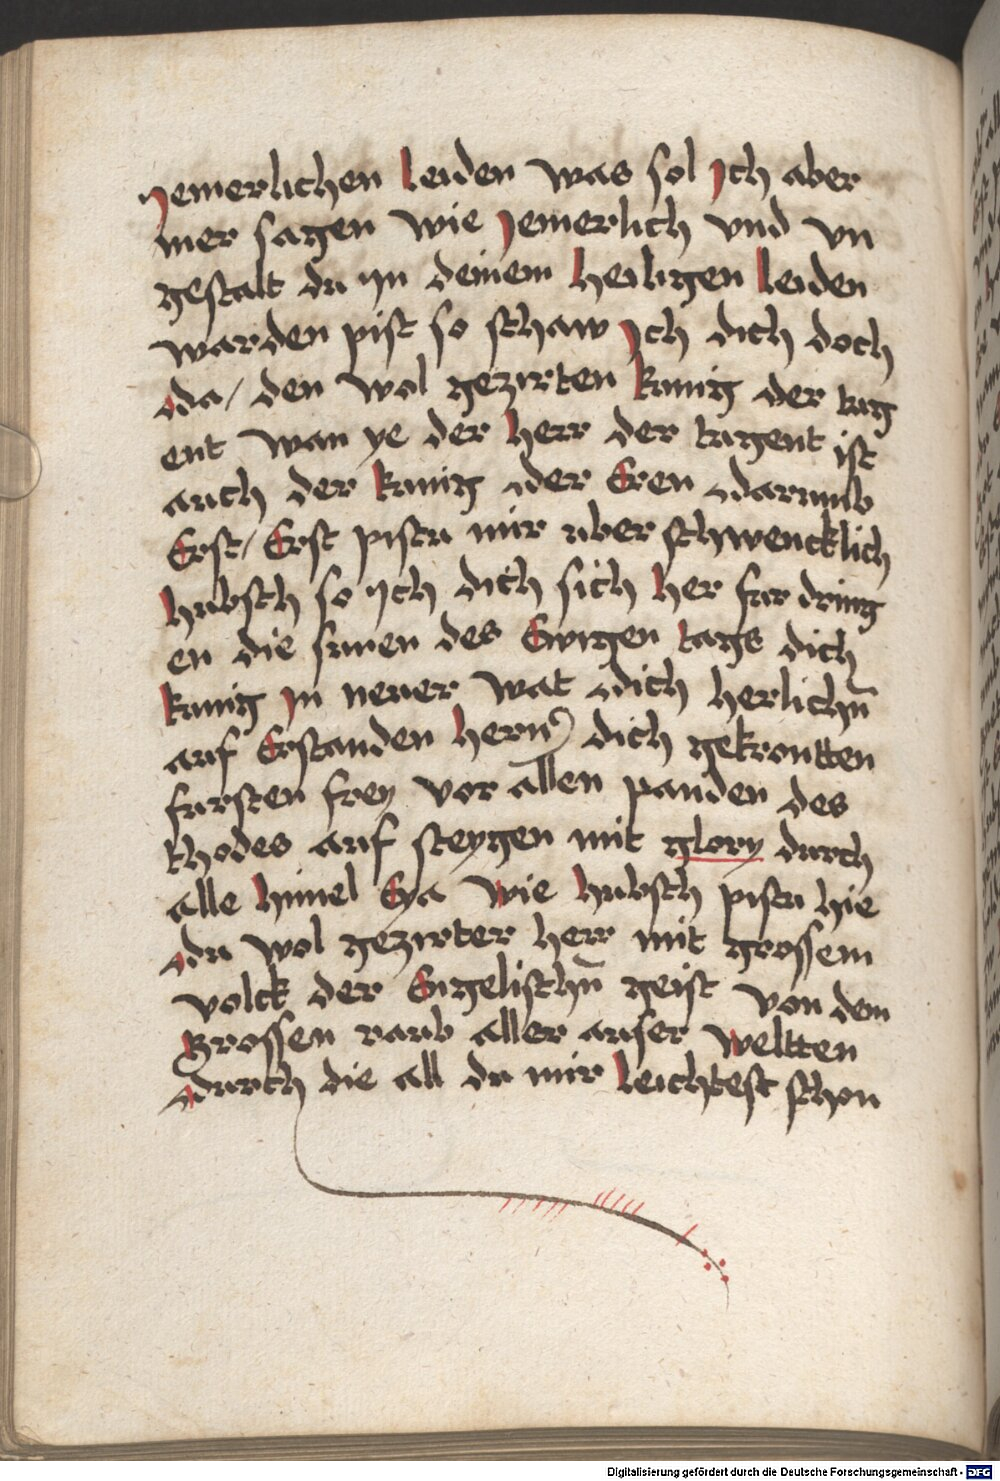 Jemerlichen leiden was sol Jch aber
mer sagen wie Jemerlich vnd vn
gestalt du yn deinem heiligen leiden
warden pist so schaw Jch dich doch
da / den wol gezirten kunig der tug
ent wan ye der herr der tugent ist
auch der kunig der Eren darumb
Erst / Erst pistu mir uber schwencklich
hubsch so ych dich sich her fur dring
en die sunen des Ewigen tags dich
kunig Jn neuer wat dich herlichn̄
auf Erstanden hern dich gekrontten
fursten frey vor allen panden des
thodes auf steygen mit glory durch
alle himel Eya wie hubsch pistu hie
du wol gezirter herr mit grossem
volck der Engelischn̄ geist von dem
Grossen raub aller auser weltten
durch die all du mir leichtest schon
Digitalisierung gefördert durch die Deutsche Forschungsgemeinschaft - DFG